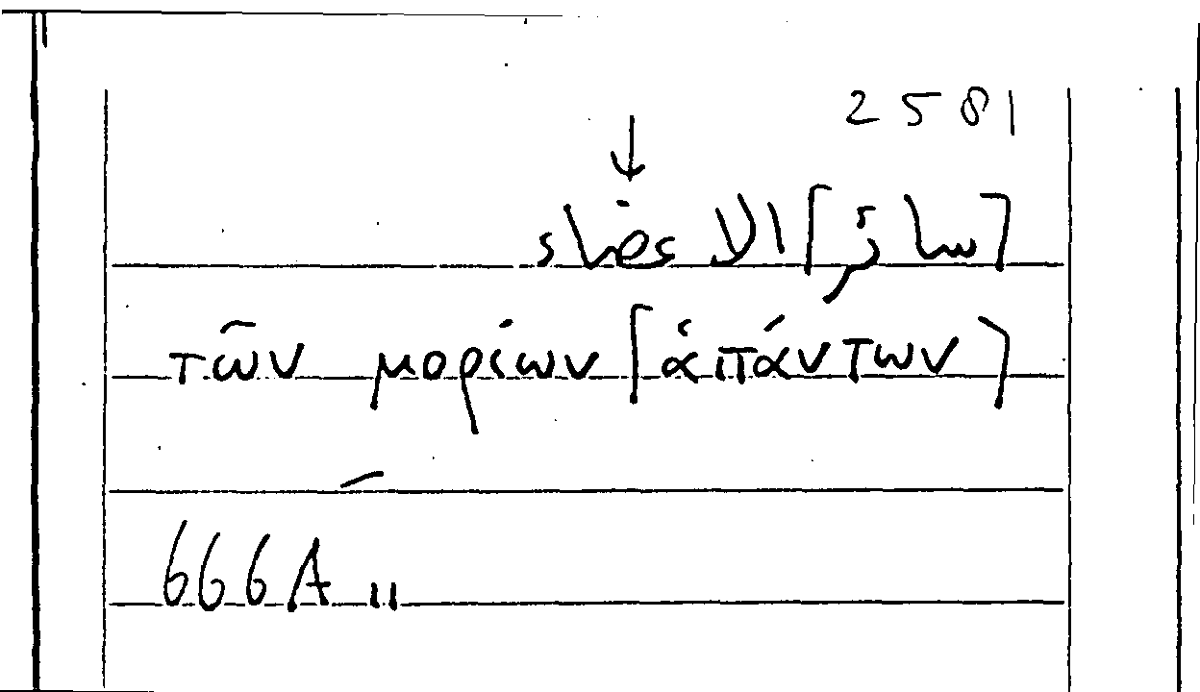 2581
↓
[سائر] الاعضاء
τῶν μορίων [ἁπάντων]
–
666A 11